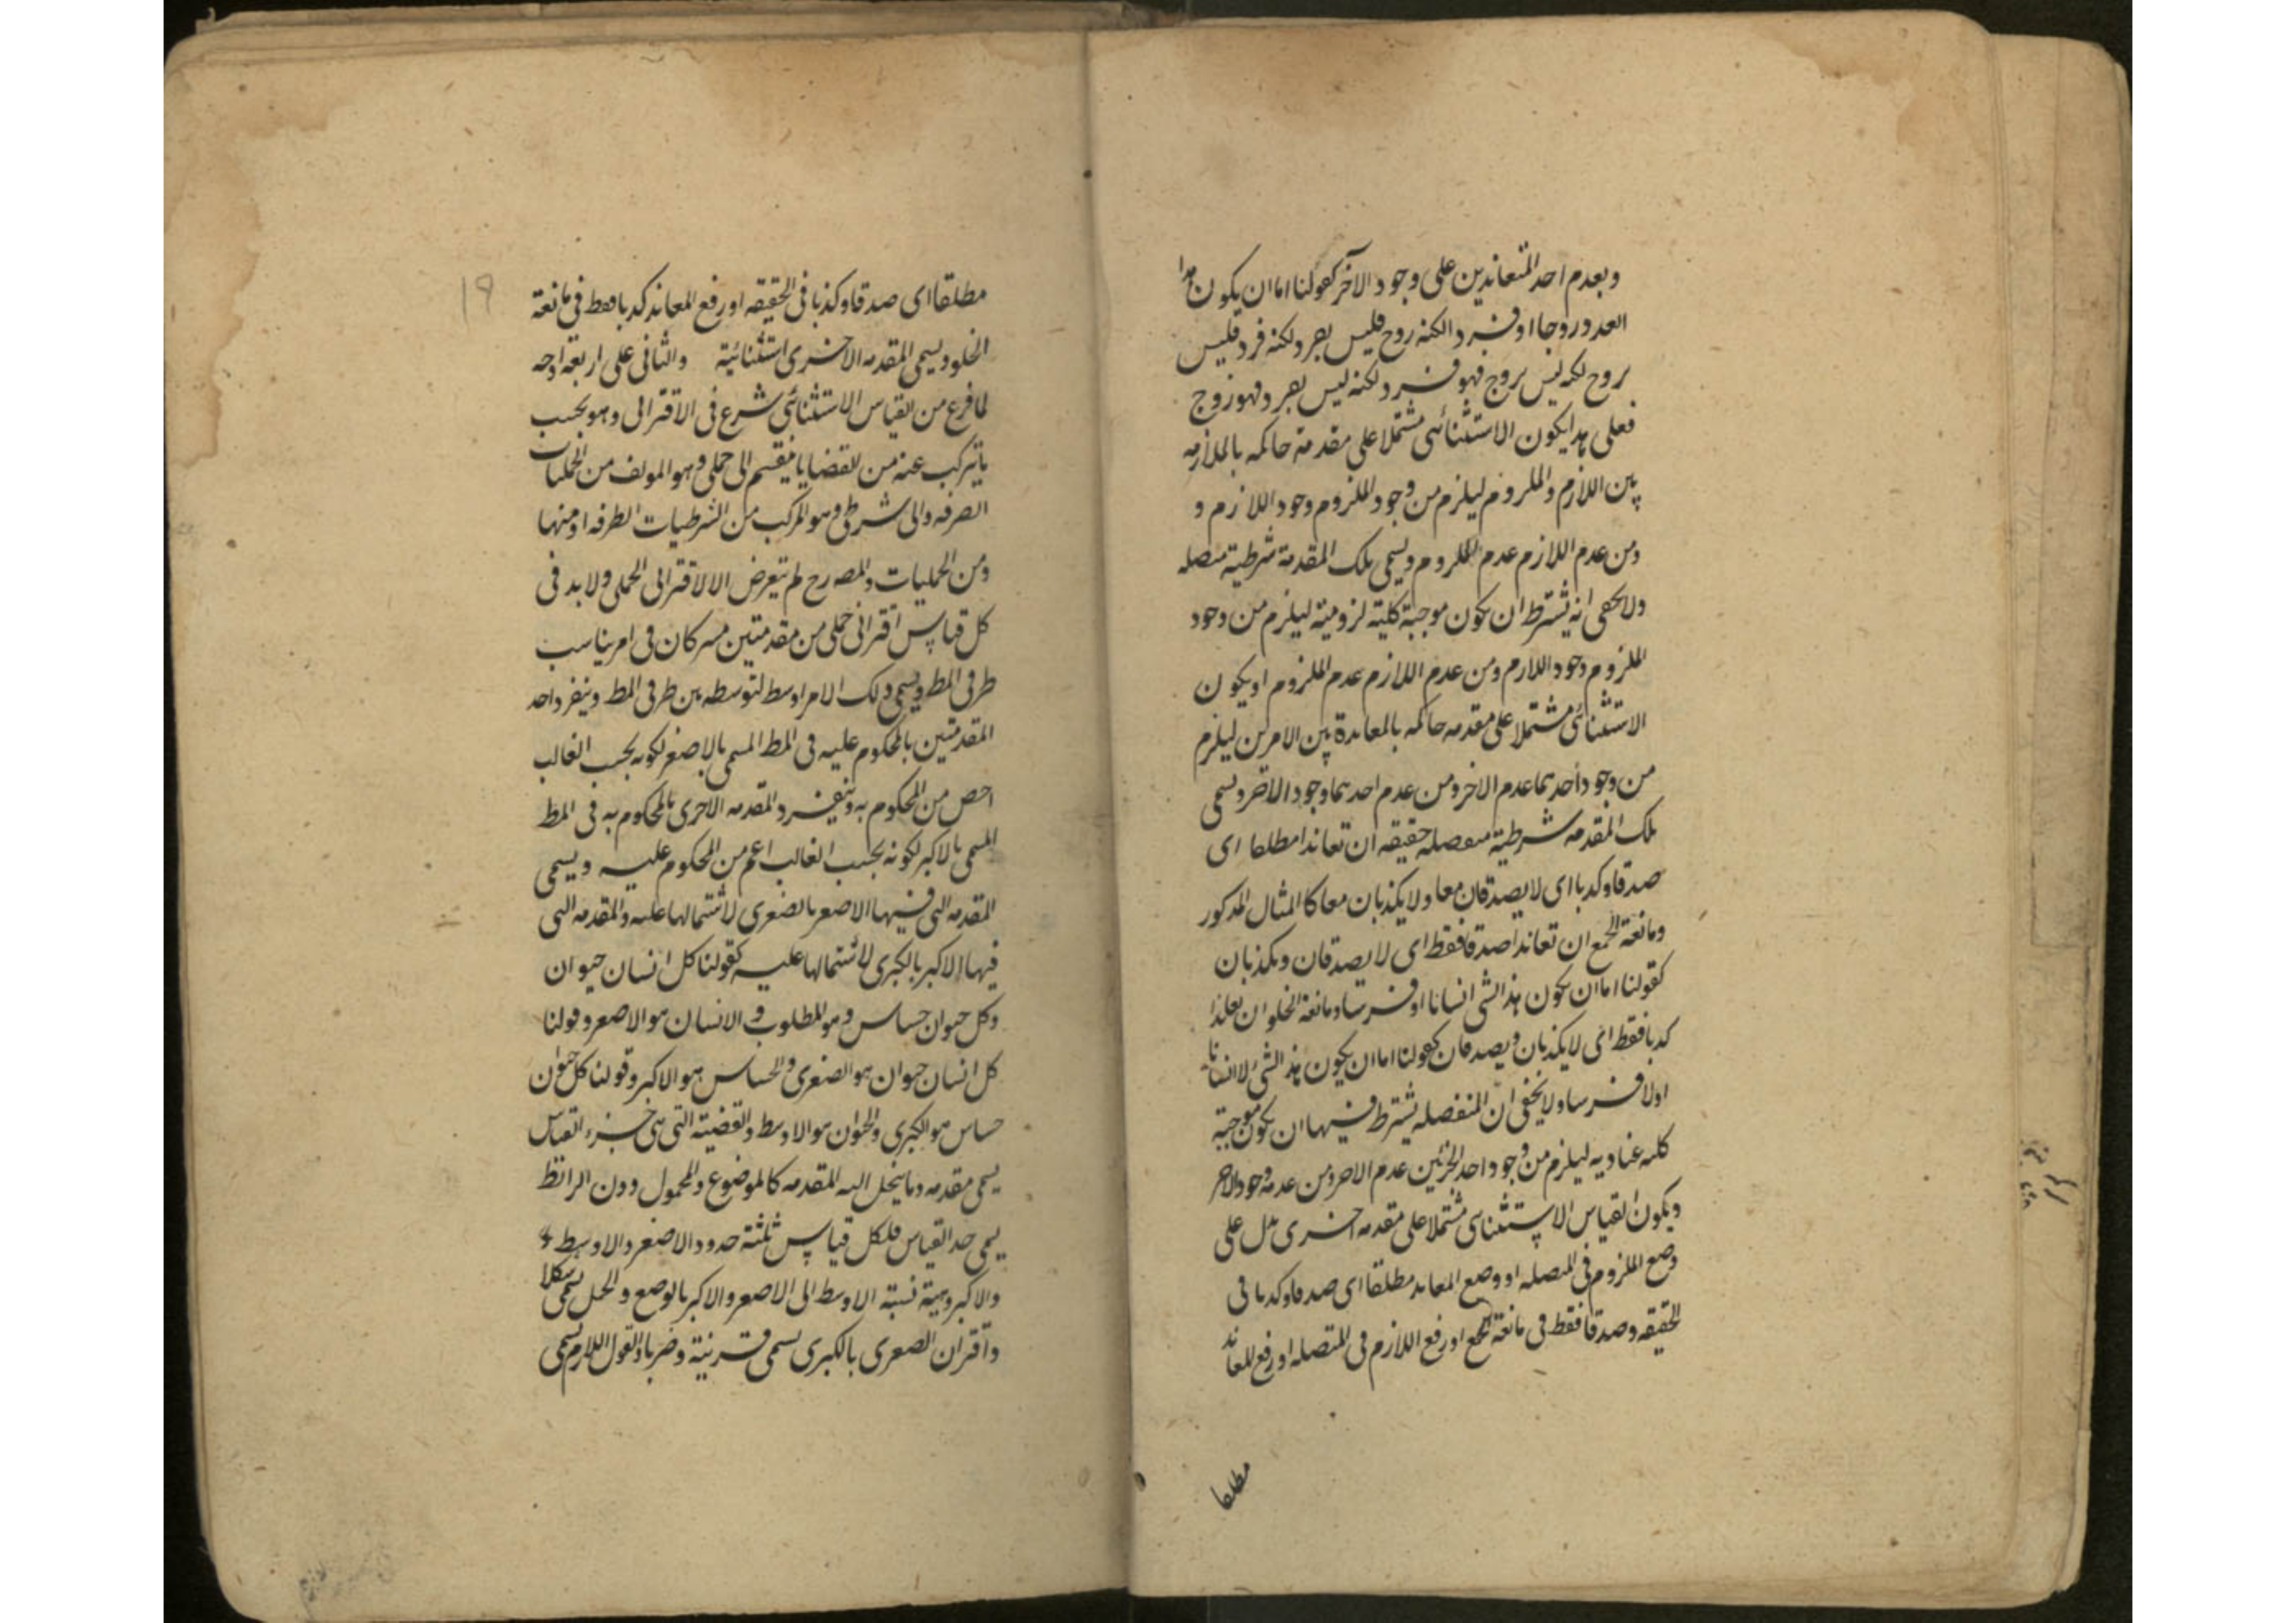 وبعدم احد المتعاندين على وجود الآخر كقولنا اما ان يكون هذا
العدد زوجا او فردا لكنه زوج فليس بفرد ولكنه فرد فليس
بزوج لكنه ليس بزوج فهو فرد لكنه ليس بفرد فهو زوج
فعلى هذا يكون الاستثنائى مشتملا على مقدمة حاكمه بالملازمه
بين اللازم والملزوم ليلزم من وجود الملزوم وجود اللازم و
ومن عدم اللازم عدم الملزوم ويسمى تلك المقدمة شرطية متصله
ولا يخفى انه يشترط ان يكون موجبة كلية لزومية ليلزم من وجود
الملزوم وجود اللازم ومن عدم اللازم عدم الملزوم او يكون
الاستثنائى مشتملا على مقدمه حاكمه بالمعاندة بين الامرين ليلزم
من وجود احدهما عدم الاخر ومن عدم احدهما وجود الاخر ويسمى
تلك المقدمه شرطية منفصله حقيقه ان تعاندا مطلقا اى
صدقا وكذبا اى لا يصدقان معا ولا يكذبان معا كالمثال المذكور
ومانعة الجمع ان تعاندا صدقا فقط اى لا يصدقان ويكذبان
كقولنا اما ان يكون هذا الشى انسانا او فرسا ومانعة الخلو ان تعاندا
كذبا فقط اى لا يكذبان ويصدقان كقولنا اما ان يكون هذا الشئ لا انسانا
او لا فرسا ولا يخفى ان المنفصله يشترط فيها ان يكون موجبة
كليه عناديه ليلزم من وجود احد الجزئين عدم الاخر ومن عدمه وجود الاخر
ويكون القياس الاستثنائى مشتملا على مقدمه اخرى يدل على
وضع الملزوم فى المتصله او وضع المعاند مطلقا اى صدقا وكذبا فى
الحقيقه وصدقا فقط فى مانعة الجمع او رفع اللازم فى المتصله او رفع المعاند
مطلقا
١٩
مطلقا اى صدقا وكذبا فى الحقيقه او رفع المعاند كذبا فقط فى مانعة
الخلو ويسمى المقدمه الاخرى استثنائية والثانى على اربعة اوجه
لما فرغ من القياس الاستثنائى شرع فى الاقترانى وهو بحسب
ما يتركب عنه من القضايا ينقسم الى حملى وهو المولف من الحمليات
الصرفه والى شرطى وهو المركب من الشرطيات الطرفه او منها
ومن الحمليات والمصه رح لم يتعرض الا لاقترانى الحملى ولا بد فى
كل قياس اقترانى حملى من مقدمتين يشتركان فى امر يناسب
طرفى المط ويسمى ذلك الامر اوسط لتوسطه بين طرفى المط وينفرد احد
المقدمتين بالمحكوم عليه فى المط المسمى بالاصغر لكونه بحسب الغالب
اخص من المحكوم به وينفرد المقدمه الاخرى بالمحكوم به فى المط
المسمى بالاكبر لكونه بحسب الغالب اعم من المحكوم عليه ويسمى
المقدمه التى فيها الاصغر بالصغرى لاشتمالها عليه والمقدمه التى
فيها الاكبر بالكبرى لاشتمالها عليه كقولنا كل انسان حيوان
وكل حيوان حساس وهو المطلوب و الانسان هو الاصغر وقولنا
كل انسان حيوان هو الصغرى والحساس هو الاكبر وقولنا كل حيوان
حساس هو الكبرى والحيوان هو الاوسط والقضية التى هى جزء القياس
يسمى مقدمه وما ينحل اليه المقدمه كالموضوع والمحمول دون الرابط
يسمى حد القياس فلكل قياس ثلثة حدود الاصغر والاوسط
والاكبر وهيئة نسبة الاوسط الى الاصغر والاكبر بالوضع والحمل يسمى شكلا
واقتران الصغرى بالكبرى يسمى قرينة وضربا والقول اللازم يسمى